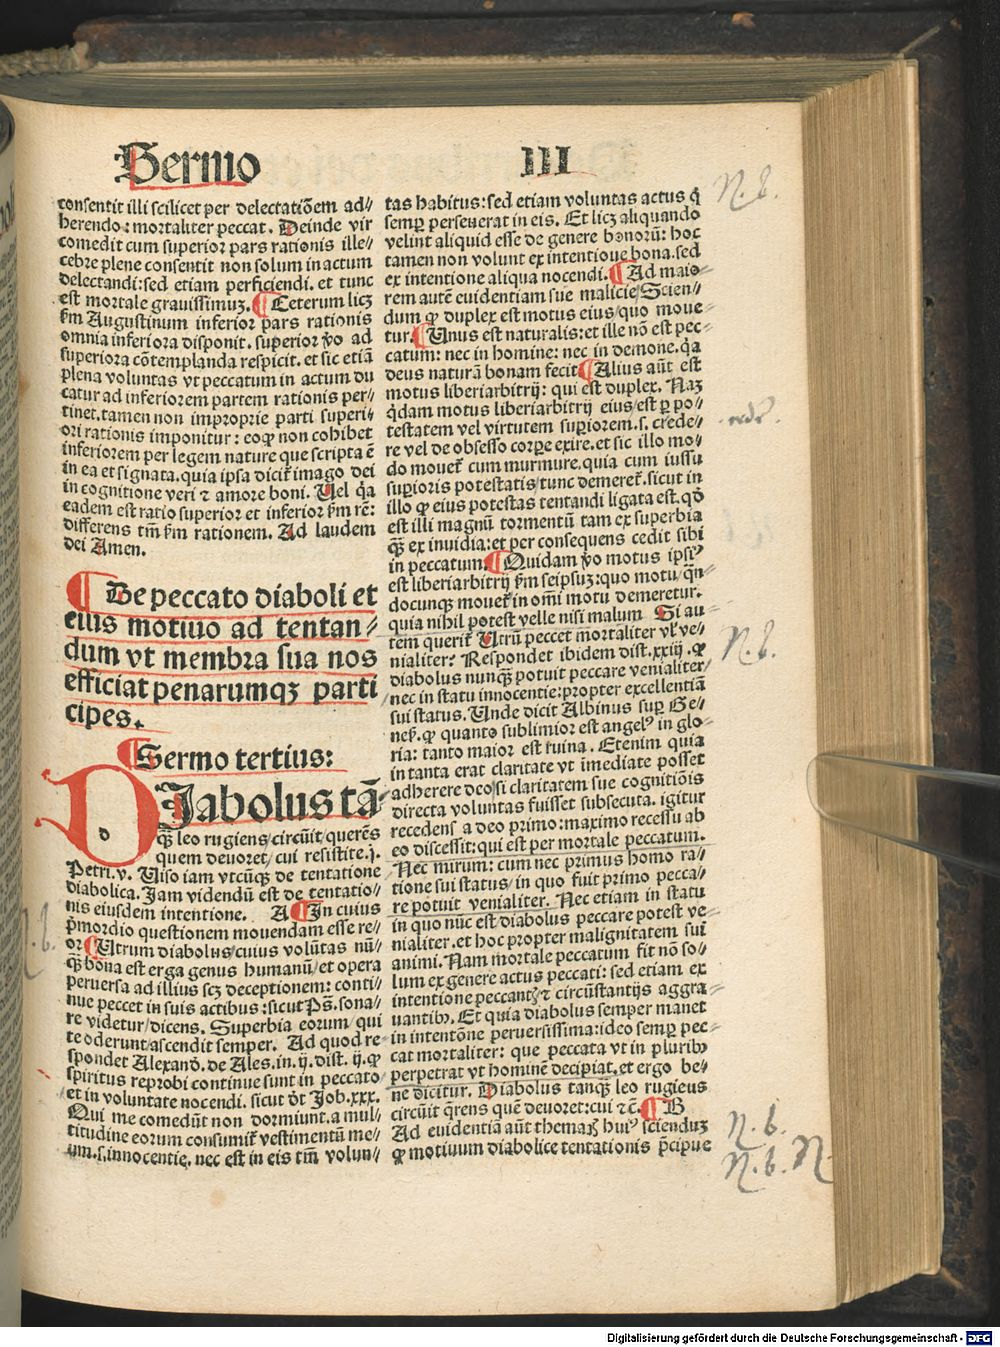 Sermo III
consentit illi scilicet per delectatiōem ad-
herendo: mortaliter peccat. Deinde vir
comedit cum superior pars rationis ille//
cebre plene consentit non solum in actum
delectandi: sed etiam perficiendi. et tunc
est mortale grauissimuꝫ. ¶ Ceterum licꝫ
ẜm Augustinum inferior pars rationis
omnia inferiora disponit. superior ꝟo ad
superiora cōtemplanda respicit. et sic etiā
plena voluntas vt peccatum in actum du
catur ad inferiorem partem rationis per//
tinet. tamen non improprie parti superi//
ori rationis imponitur: eoꝙ non cohibet
inferiorem per legem nature que scripta ē
in ea et signata. quia ipsa dicit̃ imago dei
in cognitione veri ⁊ amore boni. Uel q̇a
eadem est ratio superior et inferior ẜm rē:
differens tm̄ ẜm rationem. Ad laudem
dei Amen.
¶ De peccato diaboli et
eius motiuo ad tentan//
dum vt membra sua nos
efficiat penarumqꝫ parti
cipes.
¶ Sermo tertius:
DJabolus tā
qꝫ leo rugiens/circūit/querēs
quem deuoret/cui resistite. j.
Petri. v. Uiso iam vtcūqꝫ de tentatione
diabolica. Jam videndū est de tentatio//
nis eiusdem intentione. A ¶ In cuius
p̄mordio questionem mouendam esse re//
or ¶ Utrum diabolus/cuius volūtas nū//
qꝫ bona est erga genus humanū/et opera
peruersa ad illius scꝫ deceptionem: conti//
nue peccet in suis actibus: sicut Ps̄. sona//
re videtur/dicens. Superbia eorum/qui
te oderunt/ascendit semper. Ad quod re
spondet Alexand̄. de Ales. in. ij. dist. ij. ꝙ
spiritus reprobi continue sunt in peccato
et in voluntate nocendi. sicut d̄t Job. xxx.
Qui me comedūt non dormiunt. a mul//
titudine eorum consumit̃ vestimentū me//
um. s. innocentie. nec est in eis tm̄ volun//
tas habitus: sed etiam voluntas actus q̇
semꝑ perseuerat in eis. Et licꝫ aliquando
velint aliquid esse de genere bonorū: hoc
tamen non volunt ex intentione bona. sed
ex intentione aliqua nocendi. ¶ Ad maio-
rem autē euidentiam sue malicie/Scien//
dum ꝙ duplex est motus eius/quo moue-
tur. ¶ Unus est naturalis: et ille nō est pec-
catum: nec in homine: nec in demone. q̇a
deus naturā bonam fecit ¶ Alius aūt est
motus liberiarbitrij: qui est duplex. Naꝫ
q̇dam motus liberiarbitrij eius/est ꝑ po//
testatem vel virtutem suꝑiorem. s. crede//
re vel de obsesso corꝑe exire. et sic illo mo//
do mouet̃ cum murmure. quia cum iussu
suꝑioris potestatis/tunc demeret̃. sicut in
illo ꝙ eius potestas tentandi ligata est. qð
est illi magnū tormentū tam ex superbia
qꝫ ex inuidia: et per consequens cedit sibi
in peccatum. ¶ Quidam ꝟo motus ipsiꝰ
est liberiarbitrij ẜm seipsuꝫ: quo motu/qn̄-
docunqꝫ mouet̃ in om̄i motu demeretur.
quia nihil potest velle nisi malum Si au-
tem querit̃ Utrū peccet mortaliter vl̓ ve//
nialiter? Respondet ibidem dist. xxiij. ꝙ
diabolus nunqꝫ potuit peccare venialiter
nec in statu innocentie: propter excellentiā
sui status. Unde dicit Albinus suꝑ Ge//
nes̄. ꝙ quanto sublimior est angelꝰ in glo-
ria: tanto maior est ruina. Etenim quia
in tanta erat claritate vt imediate posset
adherere deo/si claritatem sue cognitiōis
directa voluntas fuisset subsecuta. igitur
recedens a deo primo: maximo recessu ab
eo discessit: qui est per mortale peccatum.
Nec mirum: cum nec primus homo ra//
tione sui status/in quo fuit primo pecca//
re potuit venialiter. Nec etiam in statu
in quo nūc est/diabolus peccare potest ve-
nialiter. et hoc propter malignitatem sui
animi. Nam mortale peccatum fit nō so//
lum ex genere actus peccati: sed etiam ex
intentione peccantꝭ ⁊ circūstantijs aggra-
uantibꝰ. Et quia diabolus semper manet
in intentōne peruersissima: ideo semꝑ pec-
cat mortaliter: que peccata vt in pluribꝰ
perpetrat vt hominē decipiat. et ergo be//
ne dicitur. Diabolus tanqꝫ leo rugiens
circūit q̄rens quē deuoret: cui ⁊c̄. ¶ B
Ad euidentiā aūt thematꝭ huiꝰ scienduꝫ
ꝙ motiuum diabolice tentationis p̄cipue
N. b.
N. b.
N. b.
N. b. N.
Digitalisierung gefördert durch die Deutsche Forschungsgemeinschaft - DFG